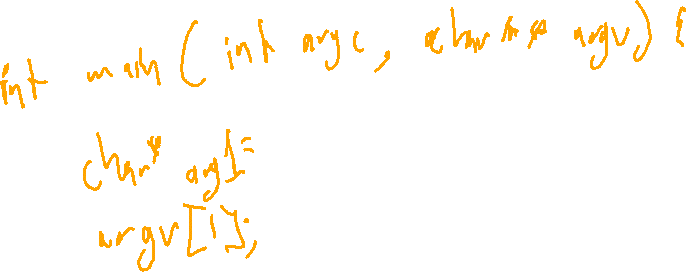 int main(int argc, char** argv) {
char* arg1=
argv[1];